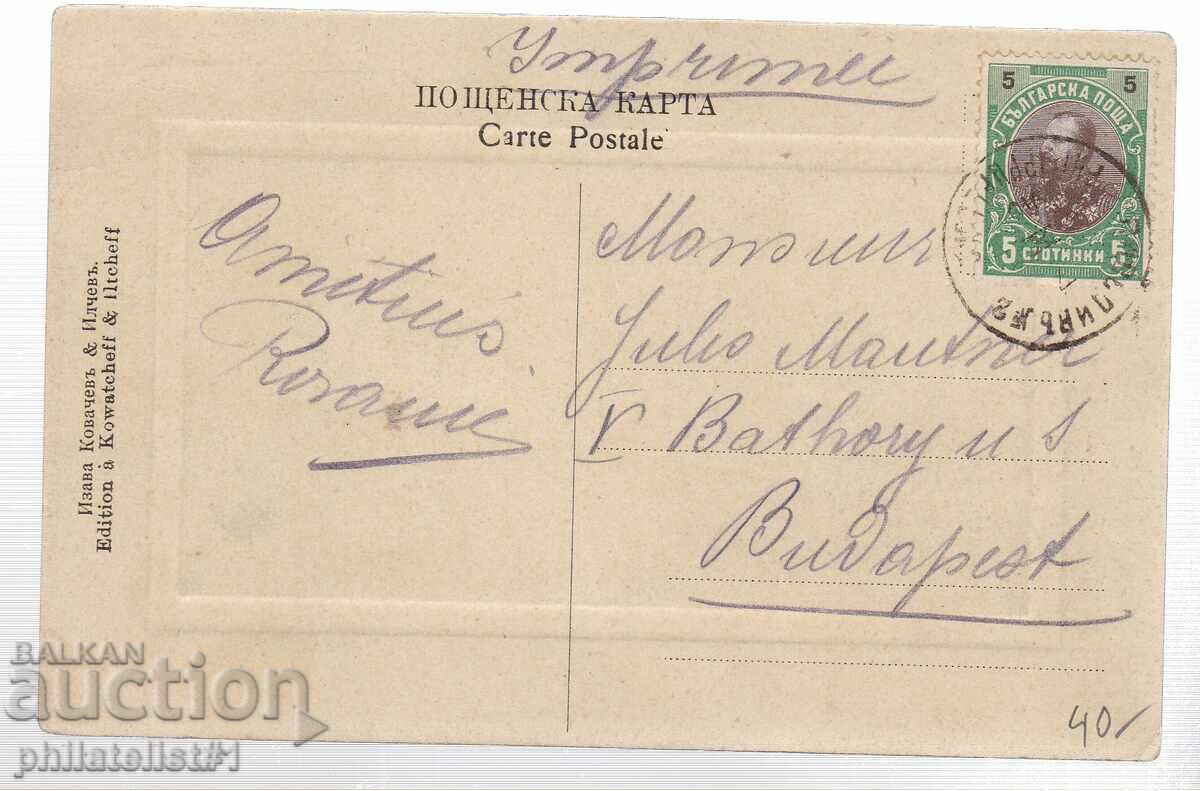 Imprimée
ПОЩЕНСКА КАРТА
Carte Postale
5 5
БЪЛГАРСКА ПОЩА
5 СТОТИНКИ 5
Rosanie
Monsieur
Jules Mautner
V Bathory u 8
Budapest
Изава Ковачевъ & Илчевъ.
Edition à Kowatcheff & Iltcheff
BALKAN
auction
philatelist#1
40/